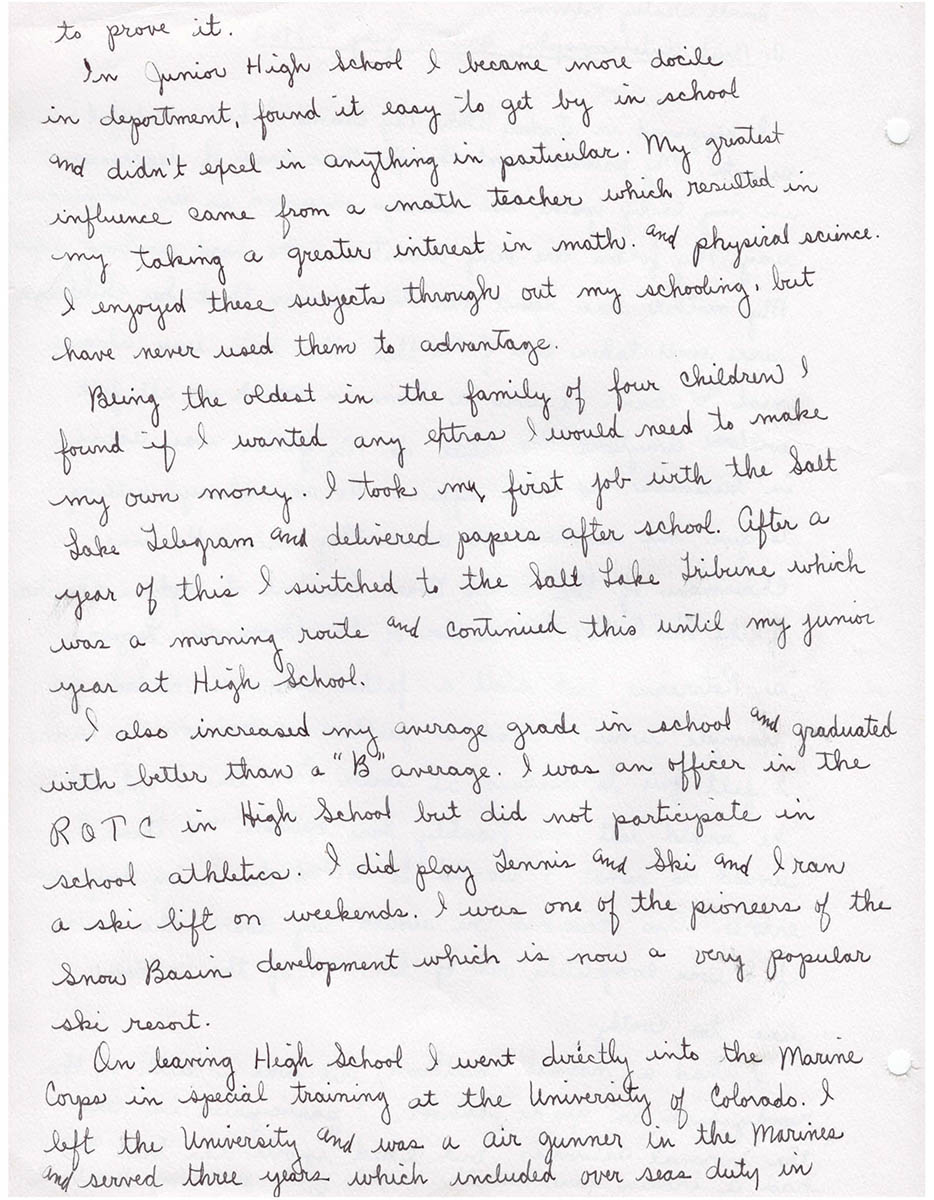 to prove it.
In Junior High School I became more docile
in deportment, found it easy to get by in school
and didn't excel in anything in particular. My greatest
influence came from a math teacher which resulted in
my taking a greater interest in math. and physical science.
I enjoyed these subjects through out my schooling, but
have never used them to advantage.
Being the oldest in the family of four children I
found if I wanted any extras I would need to make
my own money. I took my first job with the Salt
Lake Telegram and delivered papers after school. After a
year of this I switched to the Salt Lake Tribune which
was a morning route and continued this until my junior
year at High School.
I also increased my average grade in school and graduated
with better than a "B" average. I was an officer in the
R O T C in High School but did not participate in
school athletics. I did play Tennis and Ski and I ran
a ski lift on weekends. I was one of the pioneers of the
Snow Basin development which is now a very popular
ski resort.
On leaving High School I went directly into the Marine
Corps in special training at the University of Colorado. I
left the University and was a air gunner in the Marines
and served three years which included over seas duty in